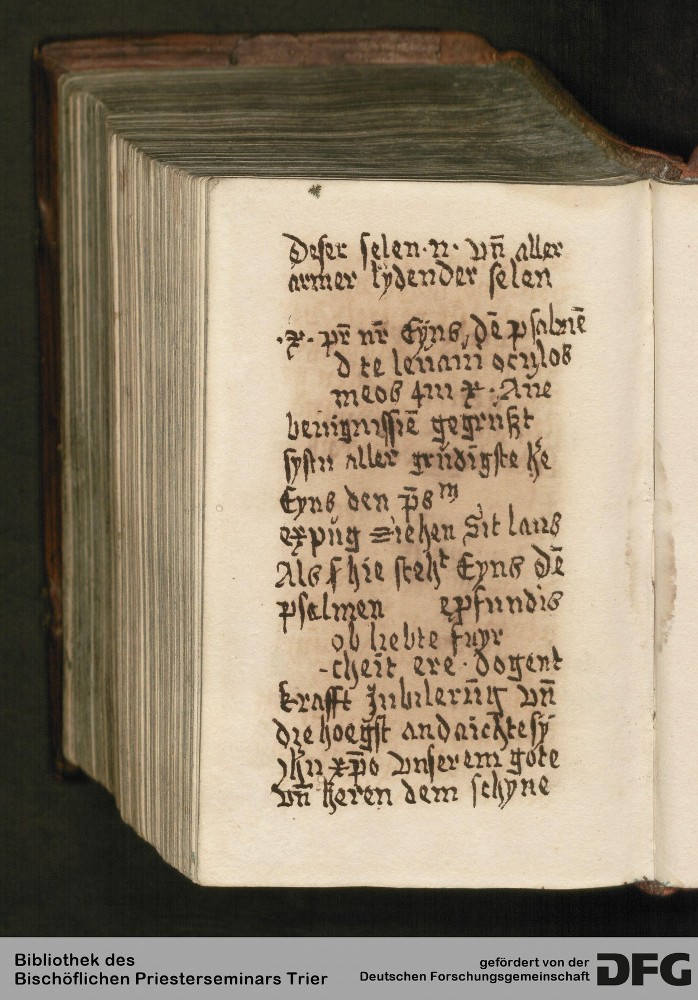 deser selen · n · vn̄ aller
armer lydender selen
· x · pr̄ nr̄ Eyns dē psalmē
d te leuaui oculos
meos 4 iii x · Aue
benignissiē gegrußt
systu aller
Eyns den p̄s m
expūg ziehen Sit laus
Als f hie steht Eyns dē
psalmen epfundis
ob liebte fuyr
-cheit ere · dogent
krafft Jubilerūg vn̄
die hoegst andaichte sy
xp̄o vnserem gote
vn̄ heren dem schyne
Bibliothek des
Bischöflichen Priesterseminars Trier
gefördert von der
Deutschen Forschungsgemeinschaft
DFG